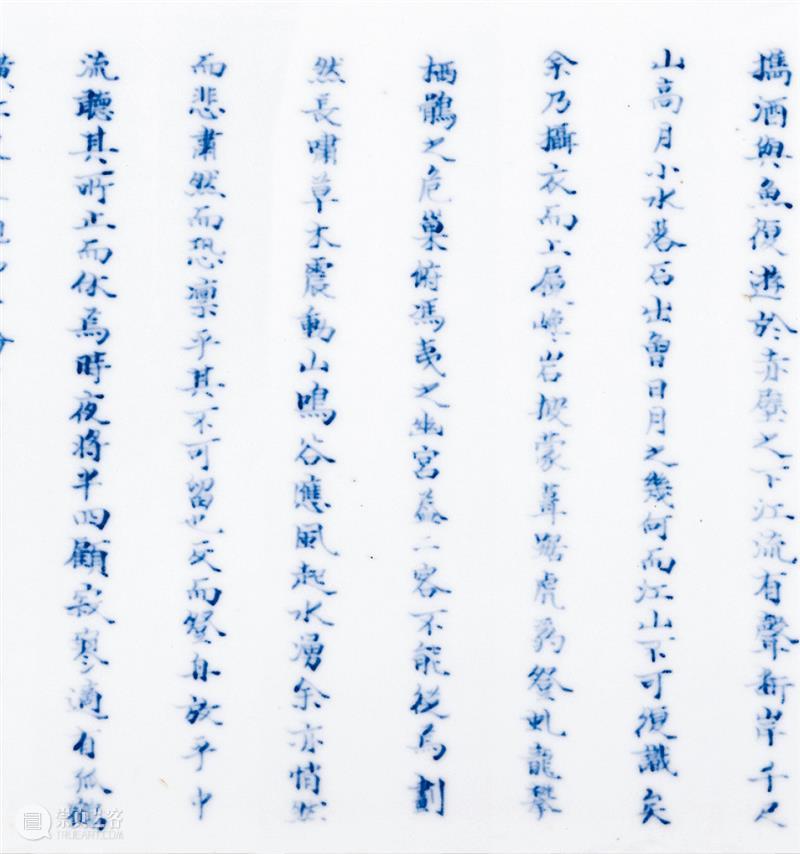 攜酒與魚復遊於赤壁之下江流有聲斷岸千尺
山高月小水落石出曾日月之幾何而江山不可復識矣
余乃攝衣而上履巉岩披蒙茸踞虎豹登虬龍攀
栖鶻之危巢俯馮夷之幽宮蓋二客不能從焉劃
然長嘯草木震動山鳴谷應風起水湧余亦悄然
而悲肅然而恐凜乎其不可留也反而登舟放乎中
流聽其所止而休焉時夜將半四顧寂寥適有孤鶴
崇真艺客
TRUEART.COM